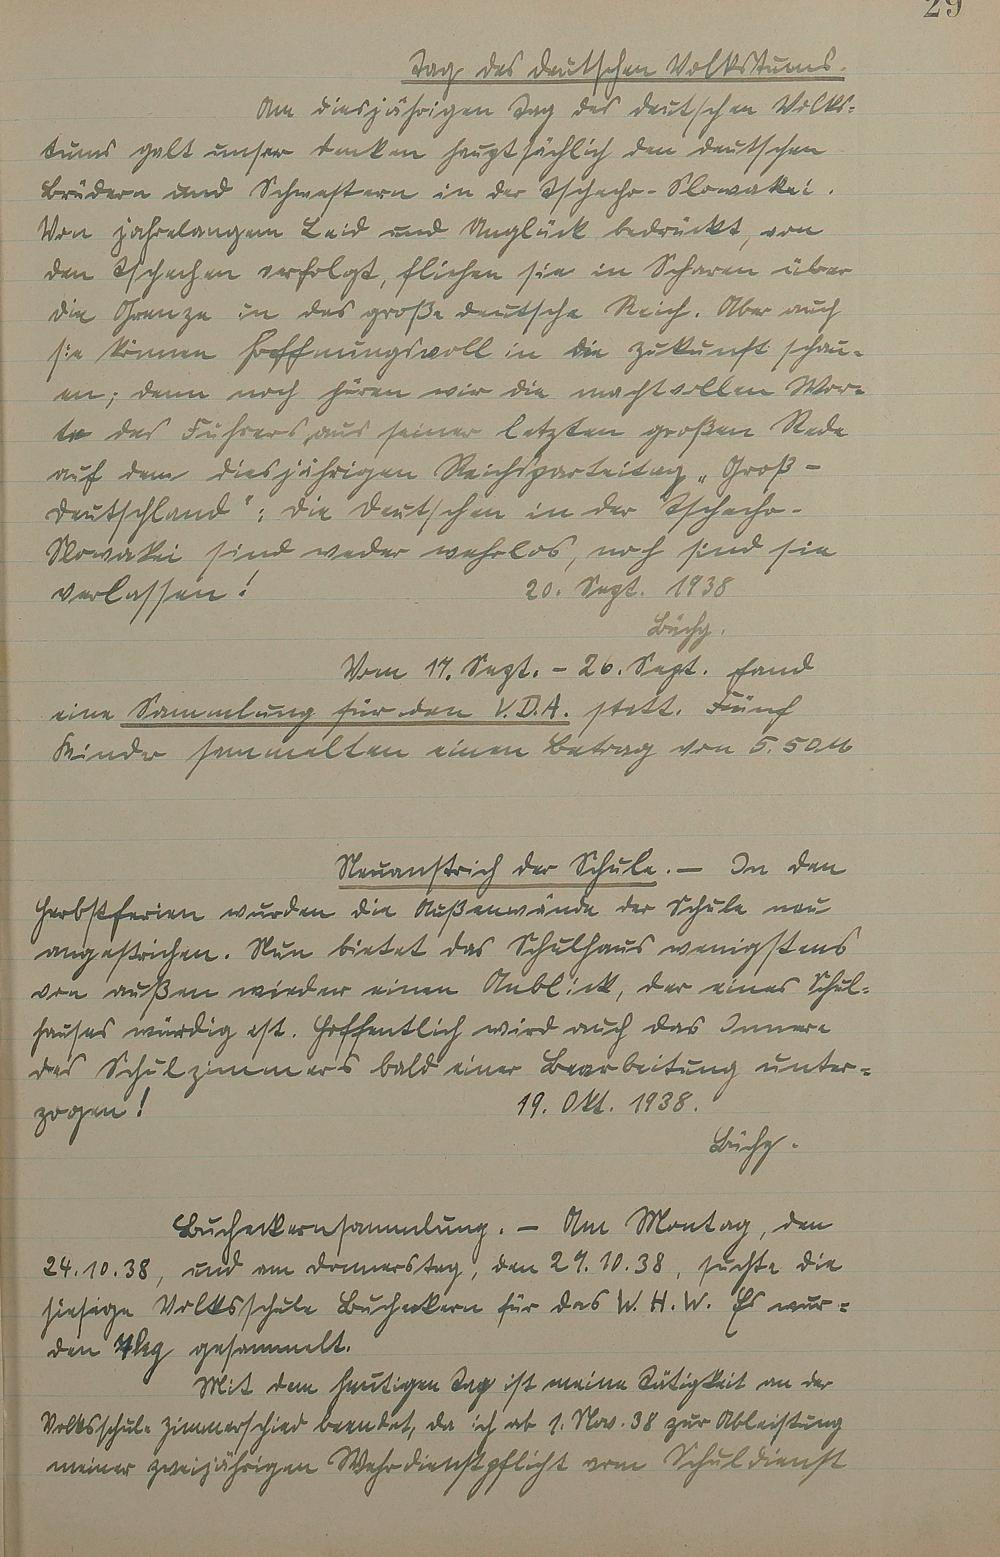 29
Tag des deutschen Volkstums.
Am diesjährigen Tag des deutschen Volks-
tums galt unser Denken hauptsächlich den deutschen
Brüdern und Schwestern in der Tschecho-Slowakei.
Von jahrelangem Leid und Unglück bedrückt, von
den Tschechen verfolgt, fliehen sie in Scharen über
die Grenze in das große deutsche Reich. Aber auch
sie können hoffnungsvoll in die Zukunft schau-
en; denn noch hören wir die machtvollen Wor-
te des Führers aus seiner letzten großen Rede
auf dem diesjährigen Reichsparteitag „Groß-
deutschland": Die Deutschen in der Tschecho-
Slowakei sind weder wehrlos, noch sind sie
verlassen! 20. Sept. 1938
Vom 17. Sept. - 26. Sept. fand
eine Sammlung für den V.D.A. statt. Fünf
Kinder sammelten einen Betrag von 5.50 M
Neuanstrich der Schule. - In den
Herbstferien wurden die Außenwände der Schule neu
angestrichen. Nun bietet das Schulhaus wenigstens
von außen wieder einen Anblick, der eines Schul-
hauses würdig ist. Hoffentlich wird auch das Innere
des Schulzimmers bald einer Bearbeitung unter-
zogen! 19. Okt. 1938.
Bucheckernsammlung. - Am Montag, den
24.10.38, und am Donnerstag, den 27.10.38, suchte die
hiesige Volksschule Bucheckern für das W.H.W. Es wur-
den kg gesammelt.
Mit dem heutigen Tag ist meine Tätigkeit an der
Volksschule Zimmerschied beendet, da ich ab 1. Nov. 38 zur Ableistung
meiner zweijährigen Wehrdienstpflicht vom Schuldienst